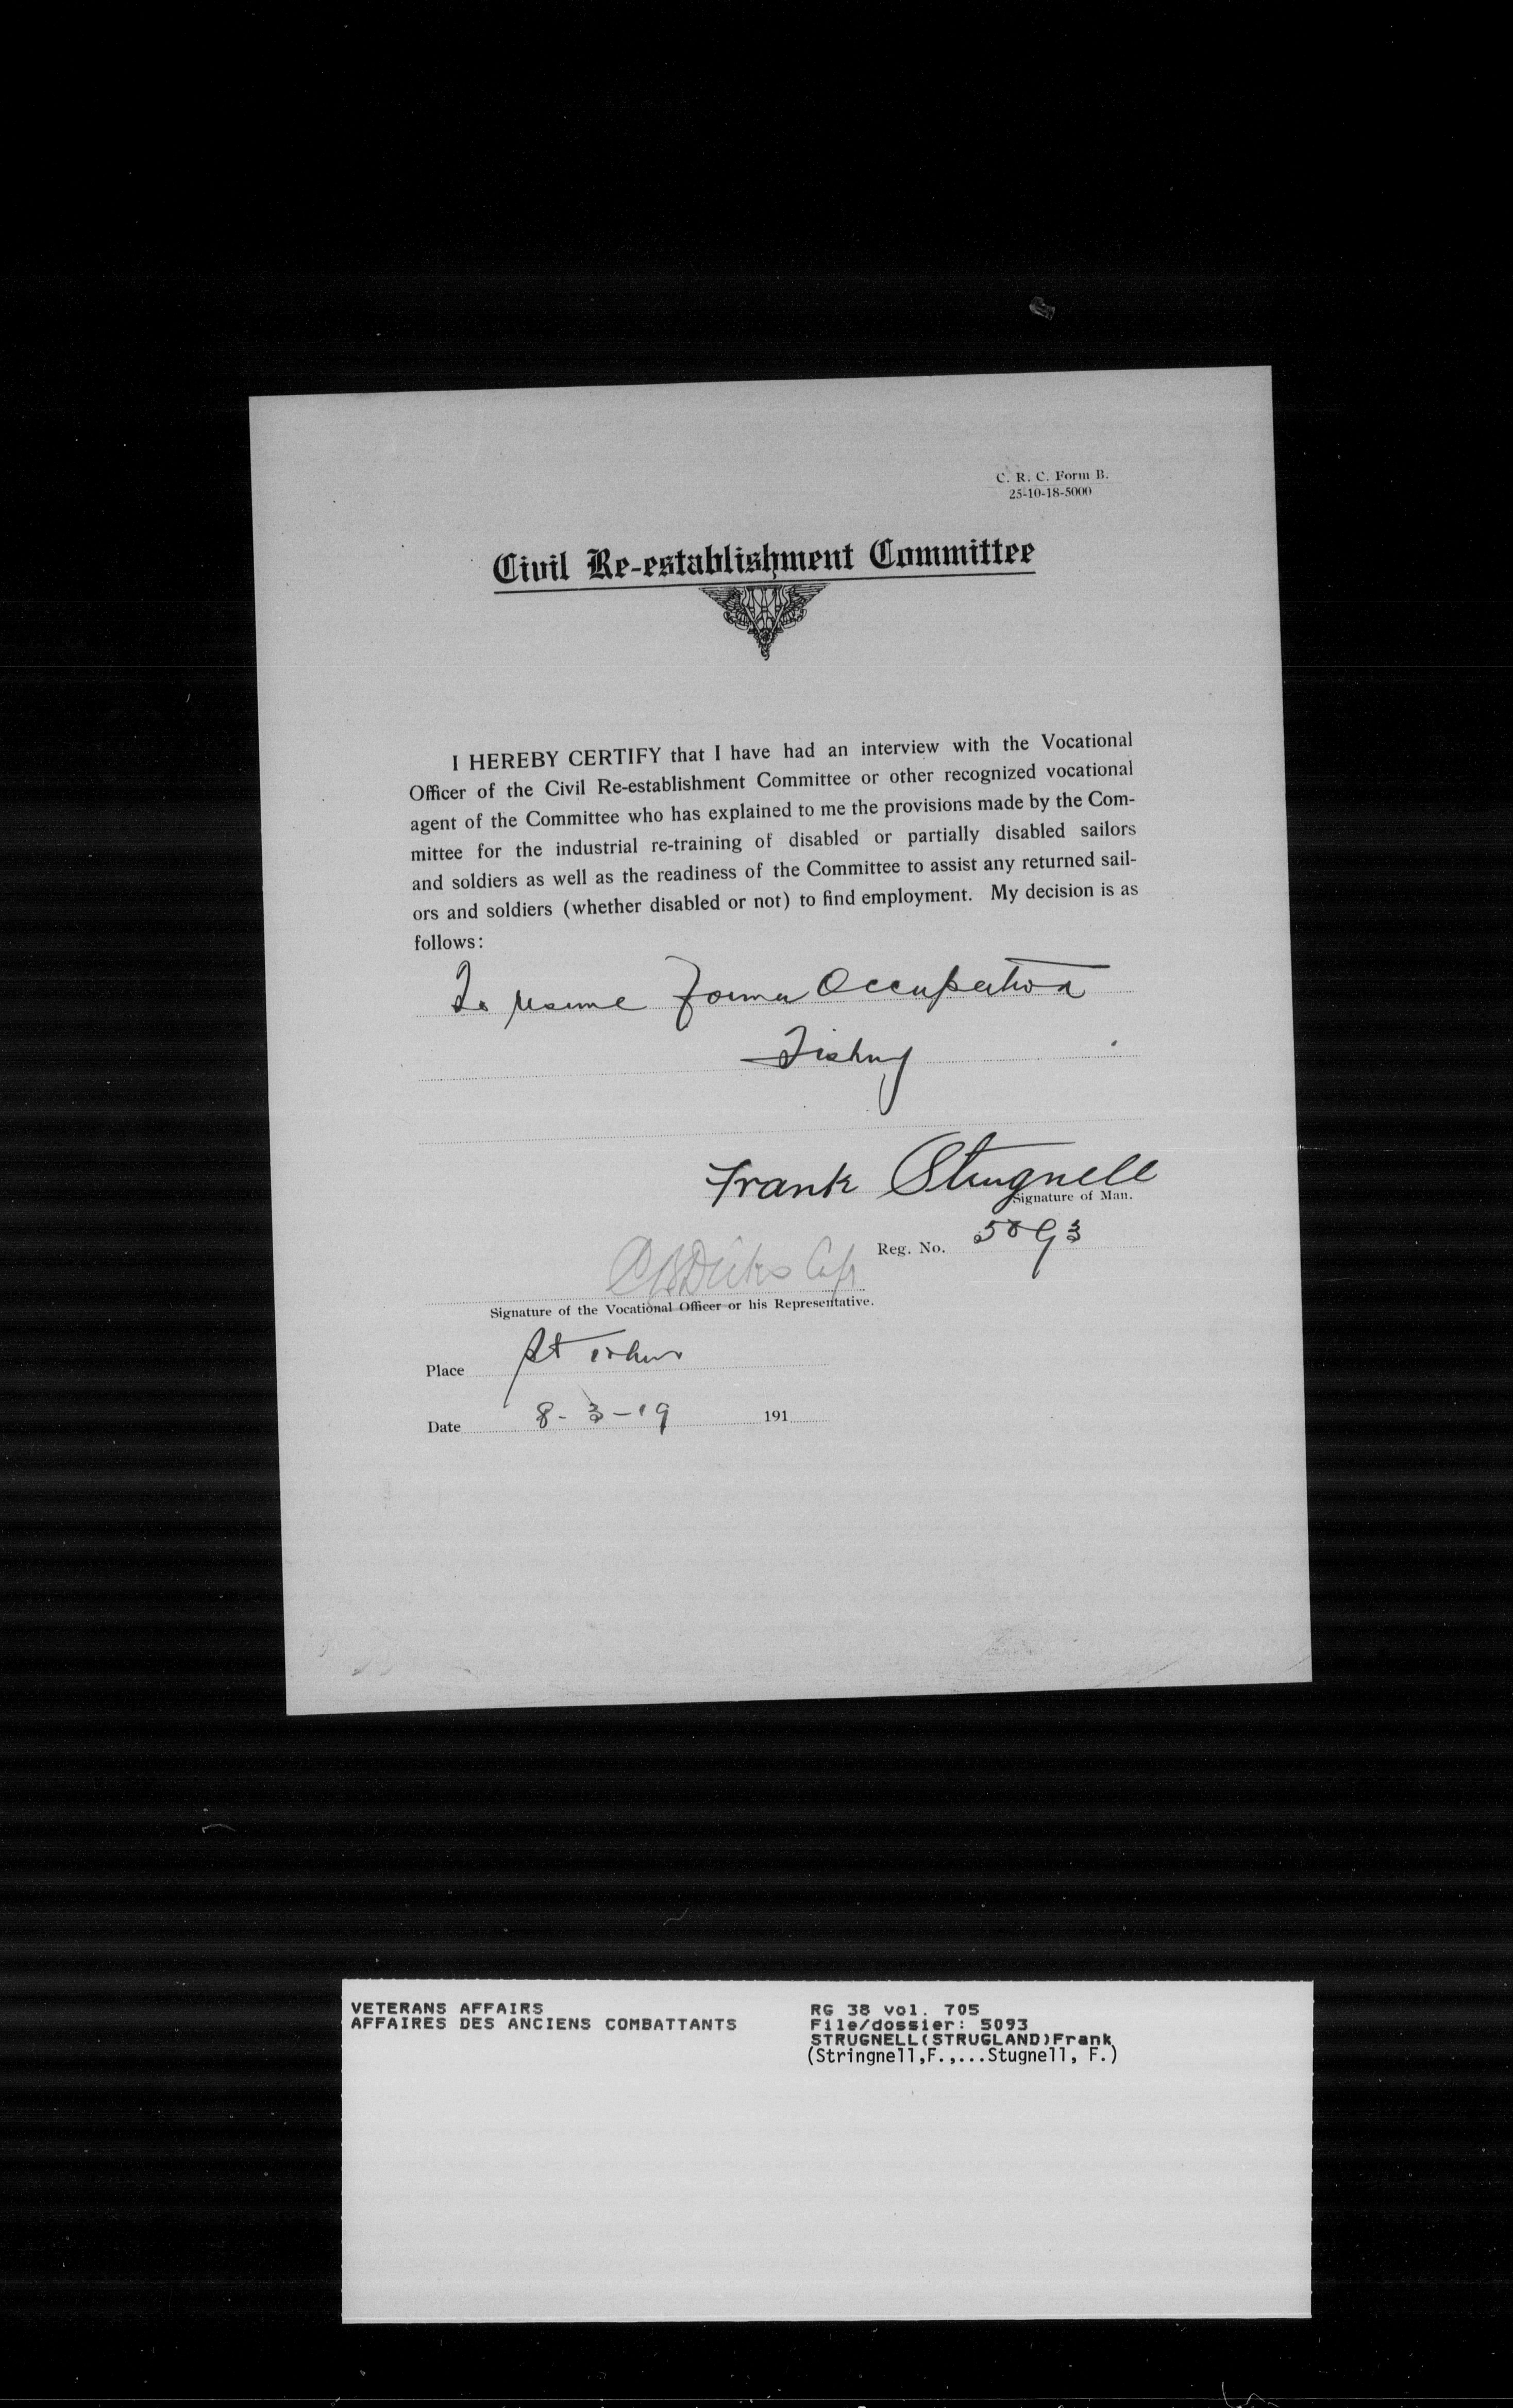 C. R. C. Form B.
25-10-18-5000
Civil Re-establishment Committee
I HEREBY CERTIFY that I have had an interview with the Vocational
Officer of the Civil Re-establishment Committee or other recognized vocational
agent of the Committee who has explained to me the provisions made by the Com-
mittee for the industrial re-training of disabled or partially disabled sailors
and soldiers as well as the readiness of the Committee to assist any returned sail-
ors and soldiers (whether disabled or not) to find employment. My decision is as
follows:
To resume Former Occupation
Fishing
Frank Strugnell
Signature of Man.
Reg. No. 5093
Signature of the Vocational Officer or his Representative.
Place St Johns
Date 8-3-19 191
VETERANS AFFAIRS
AFFAIRES DES ANCIENS COMBATTANTS
RG 38 vol. 705
File/dossier: 5093
STRUGNELL(STRUGLAND)Frank
(Stringnell,F.,...Stugnell, F.)